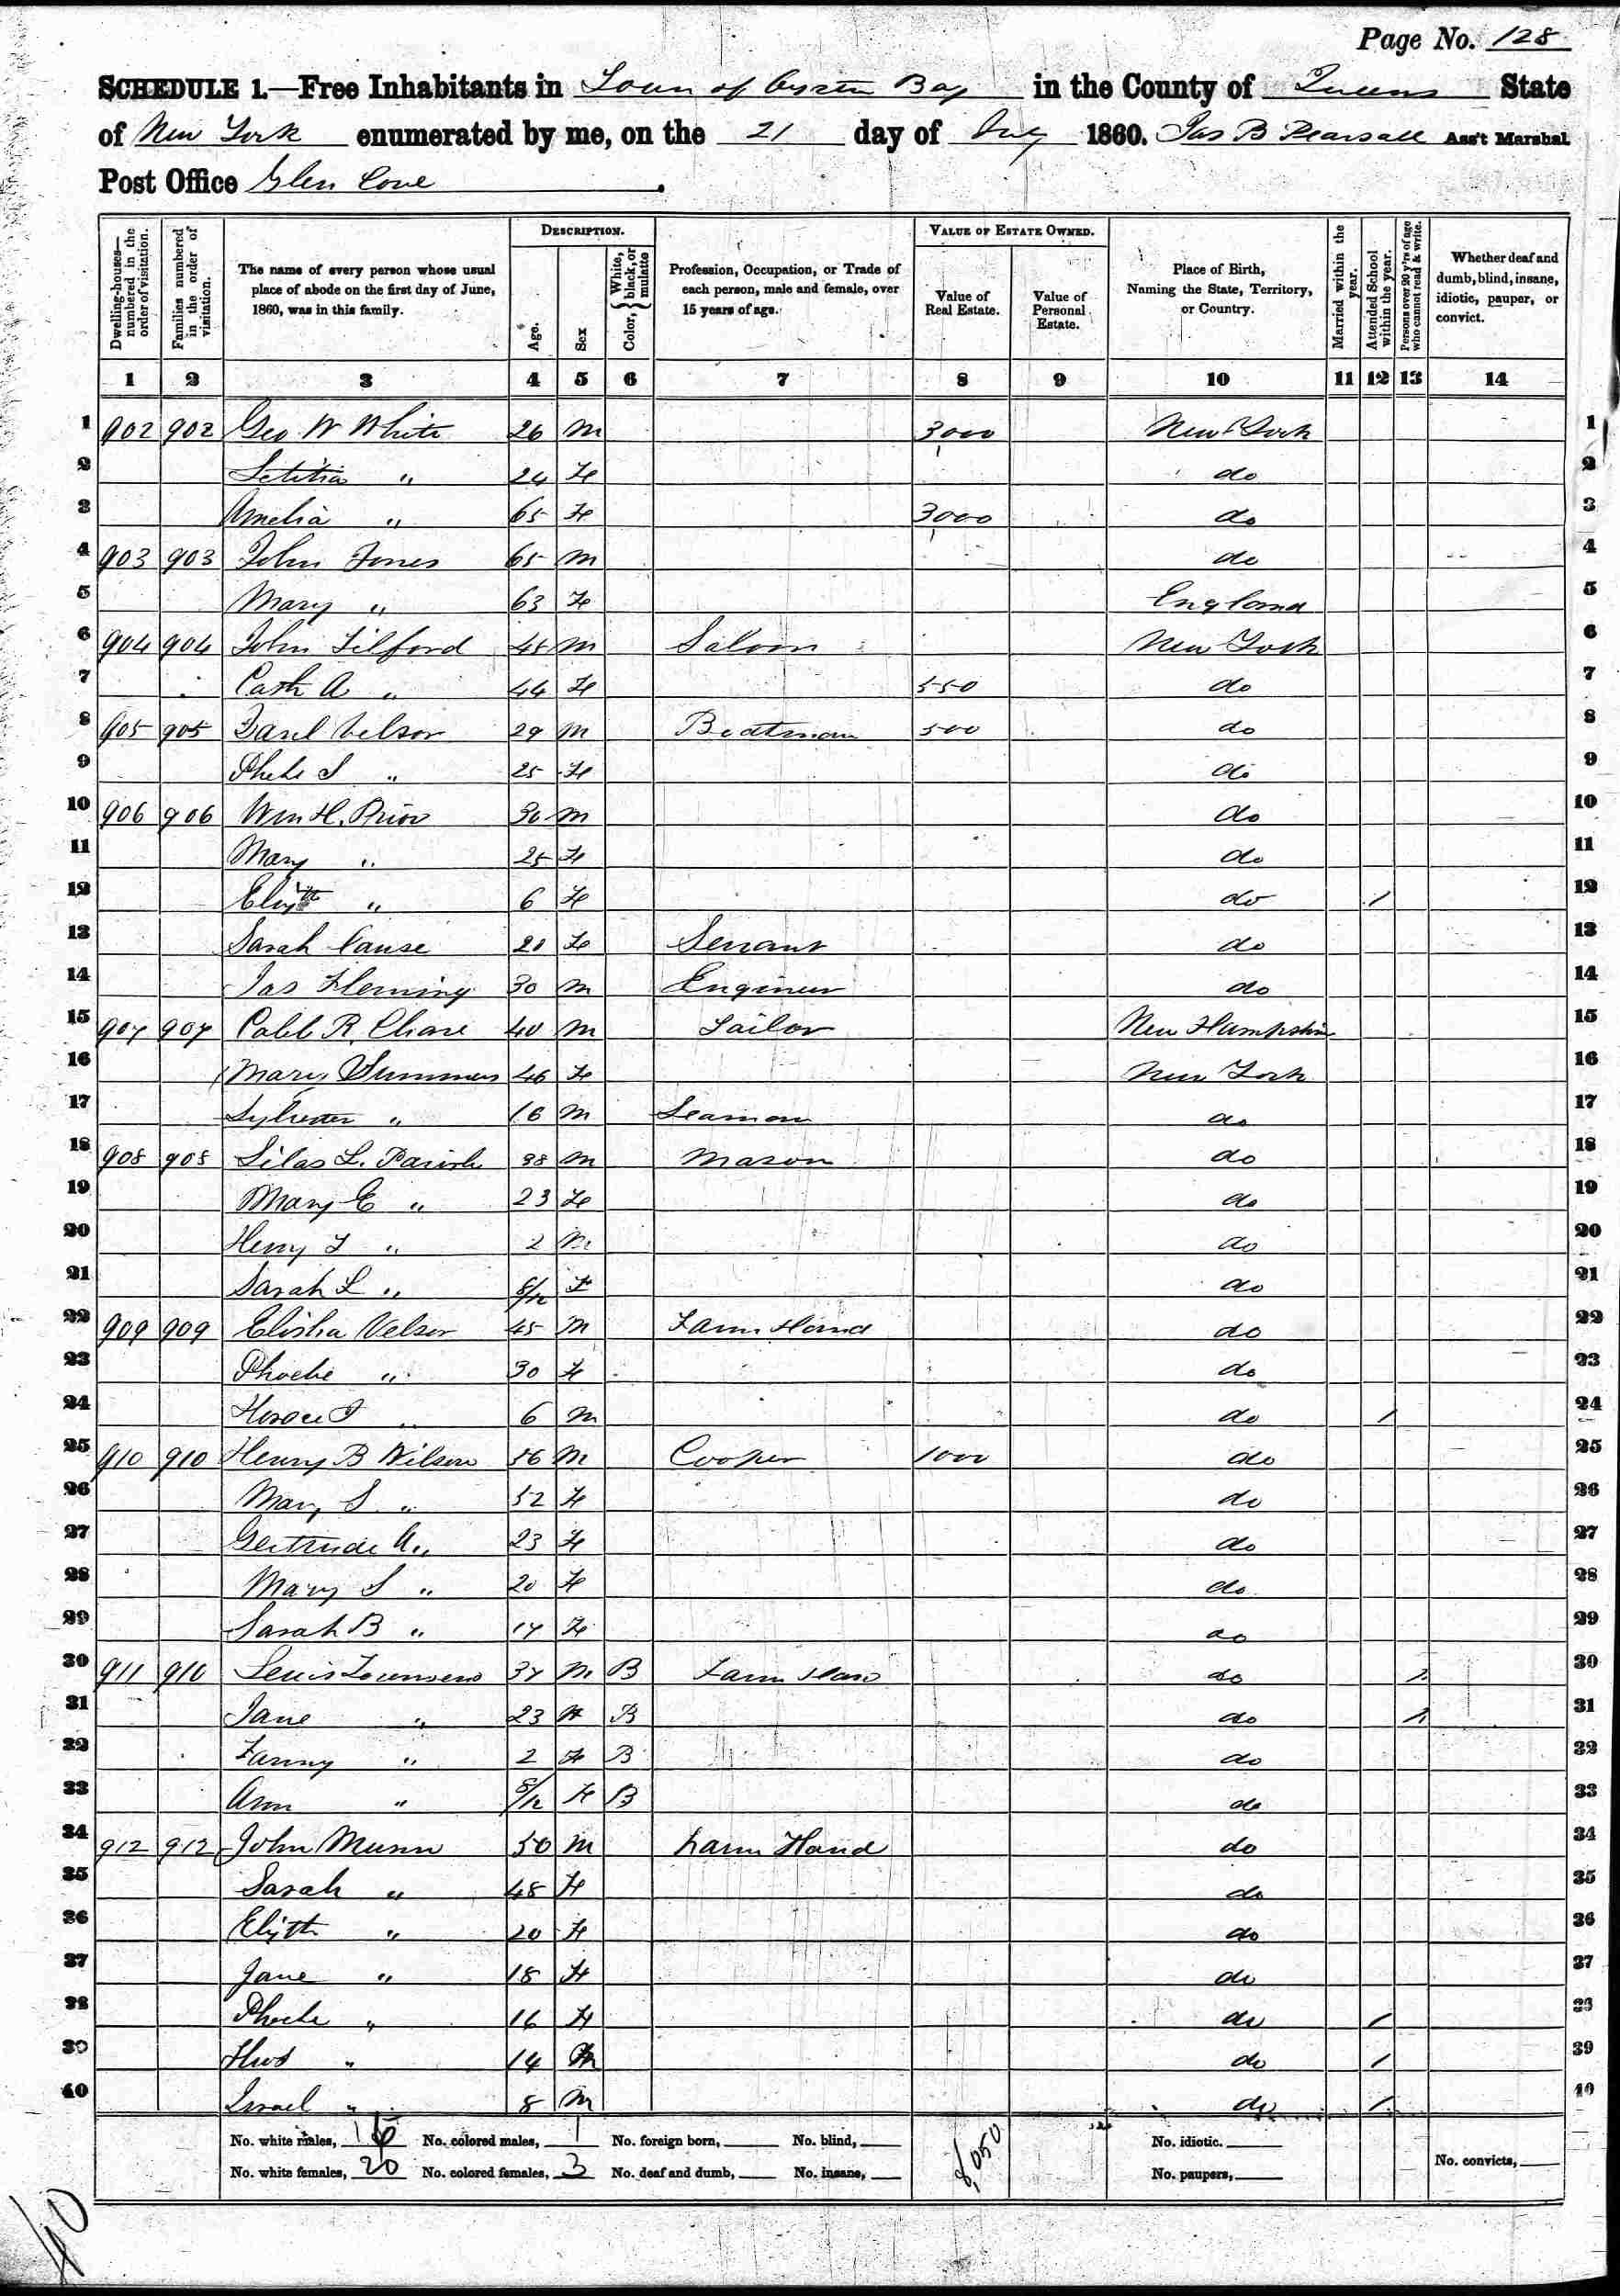 Page No. 128
SCHEDULE 1.—Free Inhabitants in Town of Oyster Bay in the County of Queens State
of New York enumerated by me, on the 21 day of July 1860. Jas B Pearsall Ass't Marshal
Post Office Glen Cove.
Dwelling-houses—numbered in the order of visitation.
Families numbered in the order of visitation.
The name of every person whose usual place of abode on the first day of June, 1860, was in this family.
DESCRIPTION.
Age.
Sex
Color, { White, black, or mulatto
Profession, Occupation, or Trade of each person, male and female, over 15 years of age.
VALUE OF ESTATE OWNED.
Value of Real Estate.
Value of Personal Estate.
Place of Birth, Naming the State, Territory, or Country.
Married within the year.
Attended School within the year.
Persons over 20 y'rs of age who cannot read & write.
Whether deaf and dumb, blind, insane, idiotic, pauper, or convict.
1 2 3 4 5 6 7 8 9 10 11 12 13 14
1 902 902 Geo W White 26 M 3000 New York 1
2 Letitia " 24 F do 2
3 Amelia " 65 F 3000 do 3
4 903 903 John Jones 65 M do 4
5 Mary " 63 F England 5
6 904 904 John Tilford 45 M Saloon New York 6
7 Cath A " 44 F 550 do 7
8 905 905 Danl Velsor 29 M Boatman 500 do 8
9 Phebe S " 25 F do 9
10 906 906 Wm H. Prior 30 M do 10
11 Mary " 25 F do 11
12 Elizth " 6 F do / 12
13 Sarah Cause 20 F Servant do 13
14 Jas Fleming 30 M Engineer do 14
15 907 907 Caleb R. Chase 40 M Tailor New Hampshire 15
16 Mary Summers 46 F New York 16
17 Sylvester " 16 M Seaman do 17
18 908 908 Silas L. Parish 38 M Mason do 18
19 Mary E " 23 F do 19
20 Henry T " 2 M do 20
21 Sarah L " 8/12 F do 21
22 909 909 Elisha Velsor 45 M Farm Hand do 22
23 Phoebe " 30 F do 23
24 Horace " 6 M do / 24
25 910 910 Henry B Wilson 56 M Cooper 1000 do 25
26 Mary S " 52 F do 26
27 Gertrude A " 23 F do 27
28 Mary S " 20 F do 28
29 Sarah B " 17 F do 29
30 911 910 Lewis Townsend 37 M B Farm Hand do / 30
31 Jane " 23 F B do / 31
32 Fanny " 2 F B do 32
33 Ann " 8/12 F B do 33
34 912 912 John Munn 50 M Farm Hand do 34
35 Sarah " 48 F do 35
36 Elizth " 20 F do 36
37 Jane " 18 F do 37
38 Phoebe " 16 F do / 38
39 " 14 M do / 39
40 Israel " 8 M do / 40
No. white males, 16 No. colored males, 1 No. foreign born, No. blind, No. idiotic.
No. white females, 20 No. colored females, 3 No. deaf and dumb, No. insane, 8,050 No. paupers, No. convicts,
40